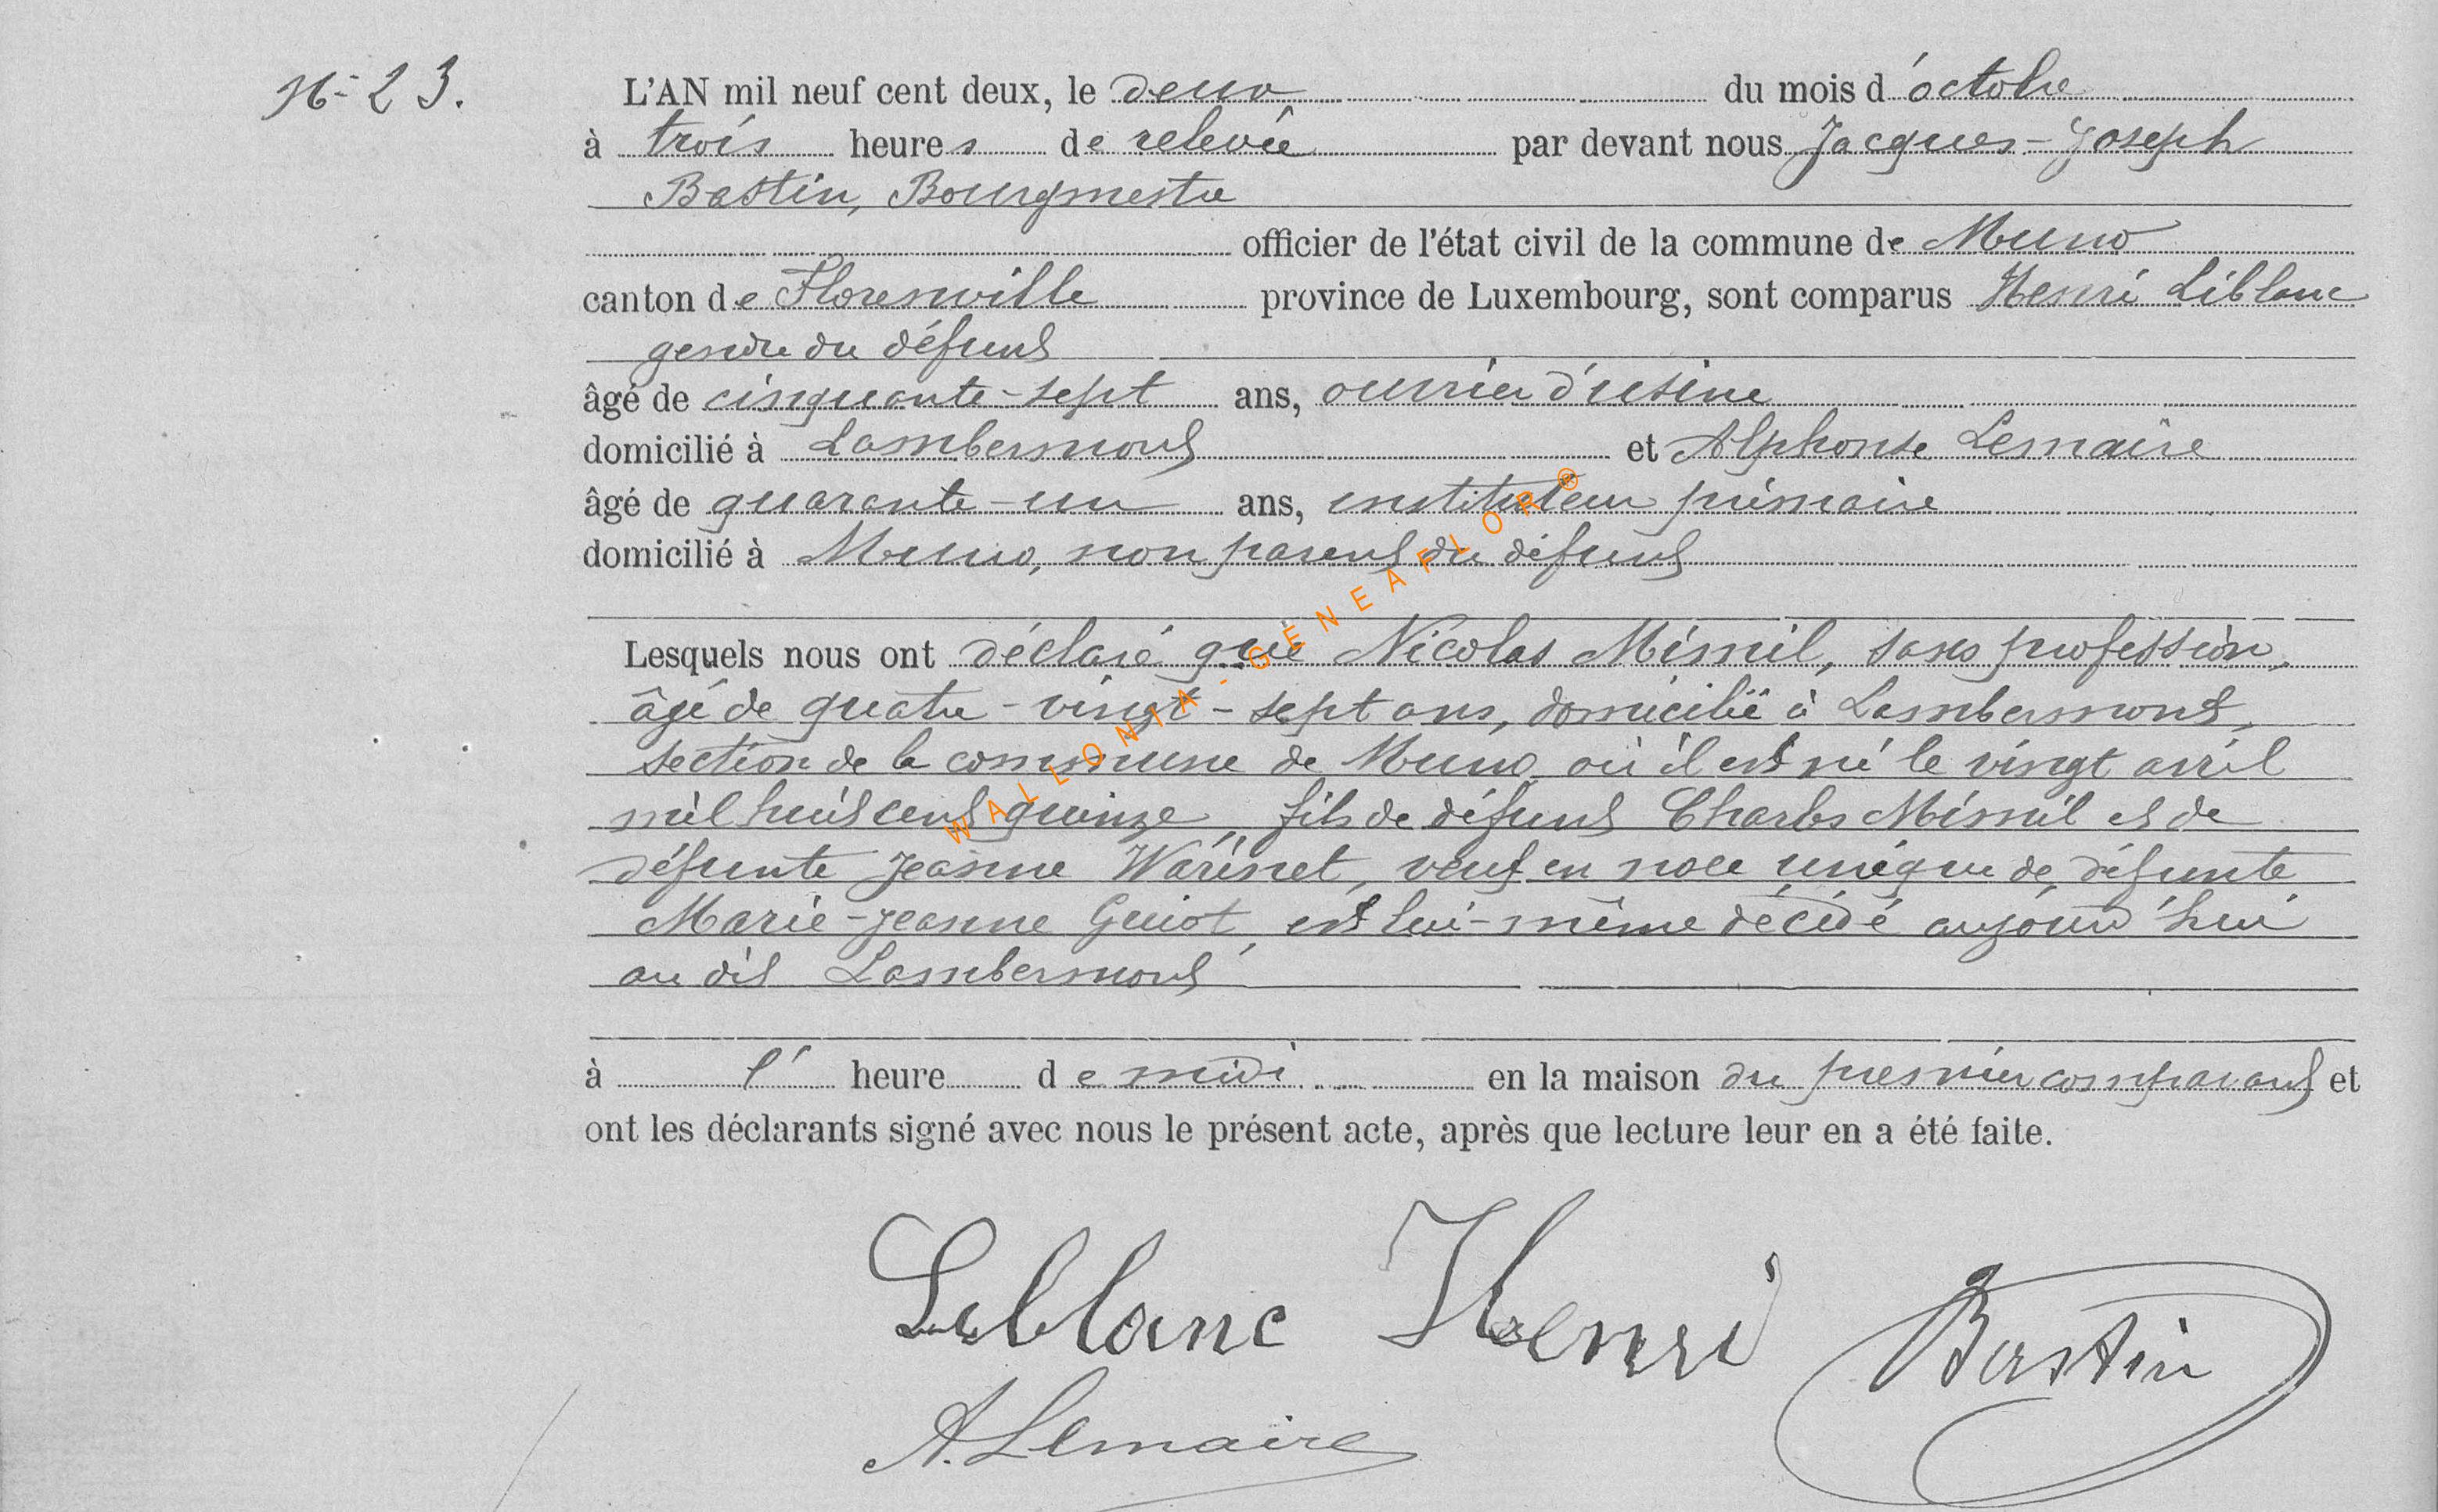 N° 23.
L'AN mil neuf cent deux, le deux du mois d'octobre
à trois heures de relevée par devant nous Jacques-Joseph
Bastin, Bourgmestre
officier de l'état civil de la commune de Muno
canton de Florenville province de Luxembourg, sont comparus Henri Leblanc
gendre du défunt
âgé de cinquante-sept ans, ouvrier d'usine
domicilié à Lambermont et Alphonse Lemaire
âgé de quarante-un ans, instituteur primaire
domicilié à Muno, non parent du défunt
Lesquels nous ont déclaré que Nicolas Misnil, sans profession,
âgé de quatre-vingt-sept ans, domicilié à Lambermont,
section de la commune de Muno où il est né le vingt avril
mil huit cent quinze, fils de défunt Charles Misnil et de
défunte Jeanne Warinet, veuf en noce unique de défunte
Marie-Jeanne Guiot, est lui-même décédé aujourd'hui
au dit Lambermont
à l' heure de midi en la maison du premier comparant et
ont les déclarants signé avec nous le présent acte, après que lecture leur en a été faite.
Leblanc Henri Bastin
A. Lemaire
WALLONIA-GENEAFLOR®